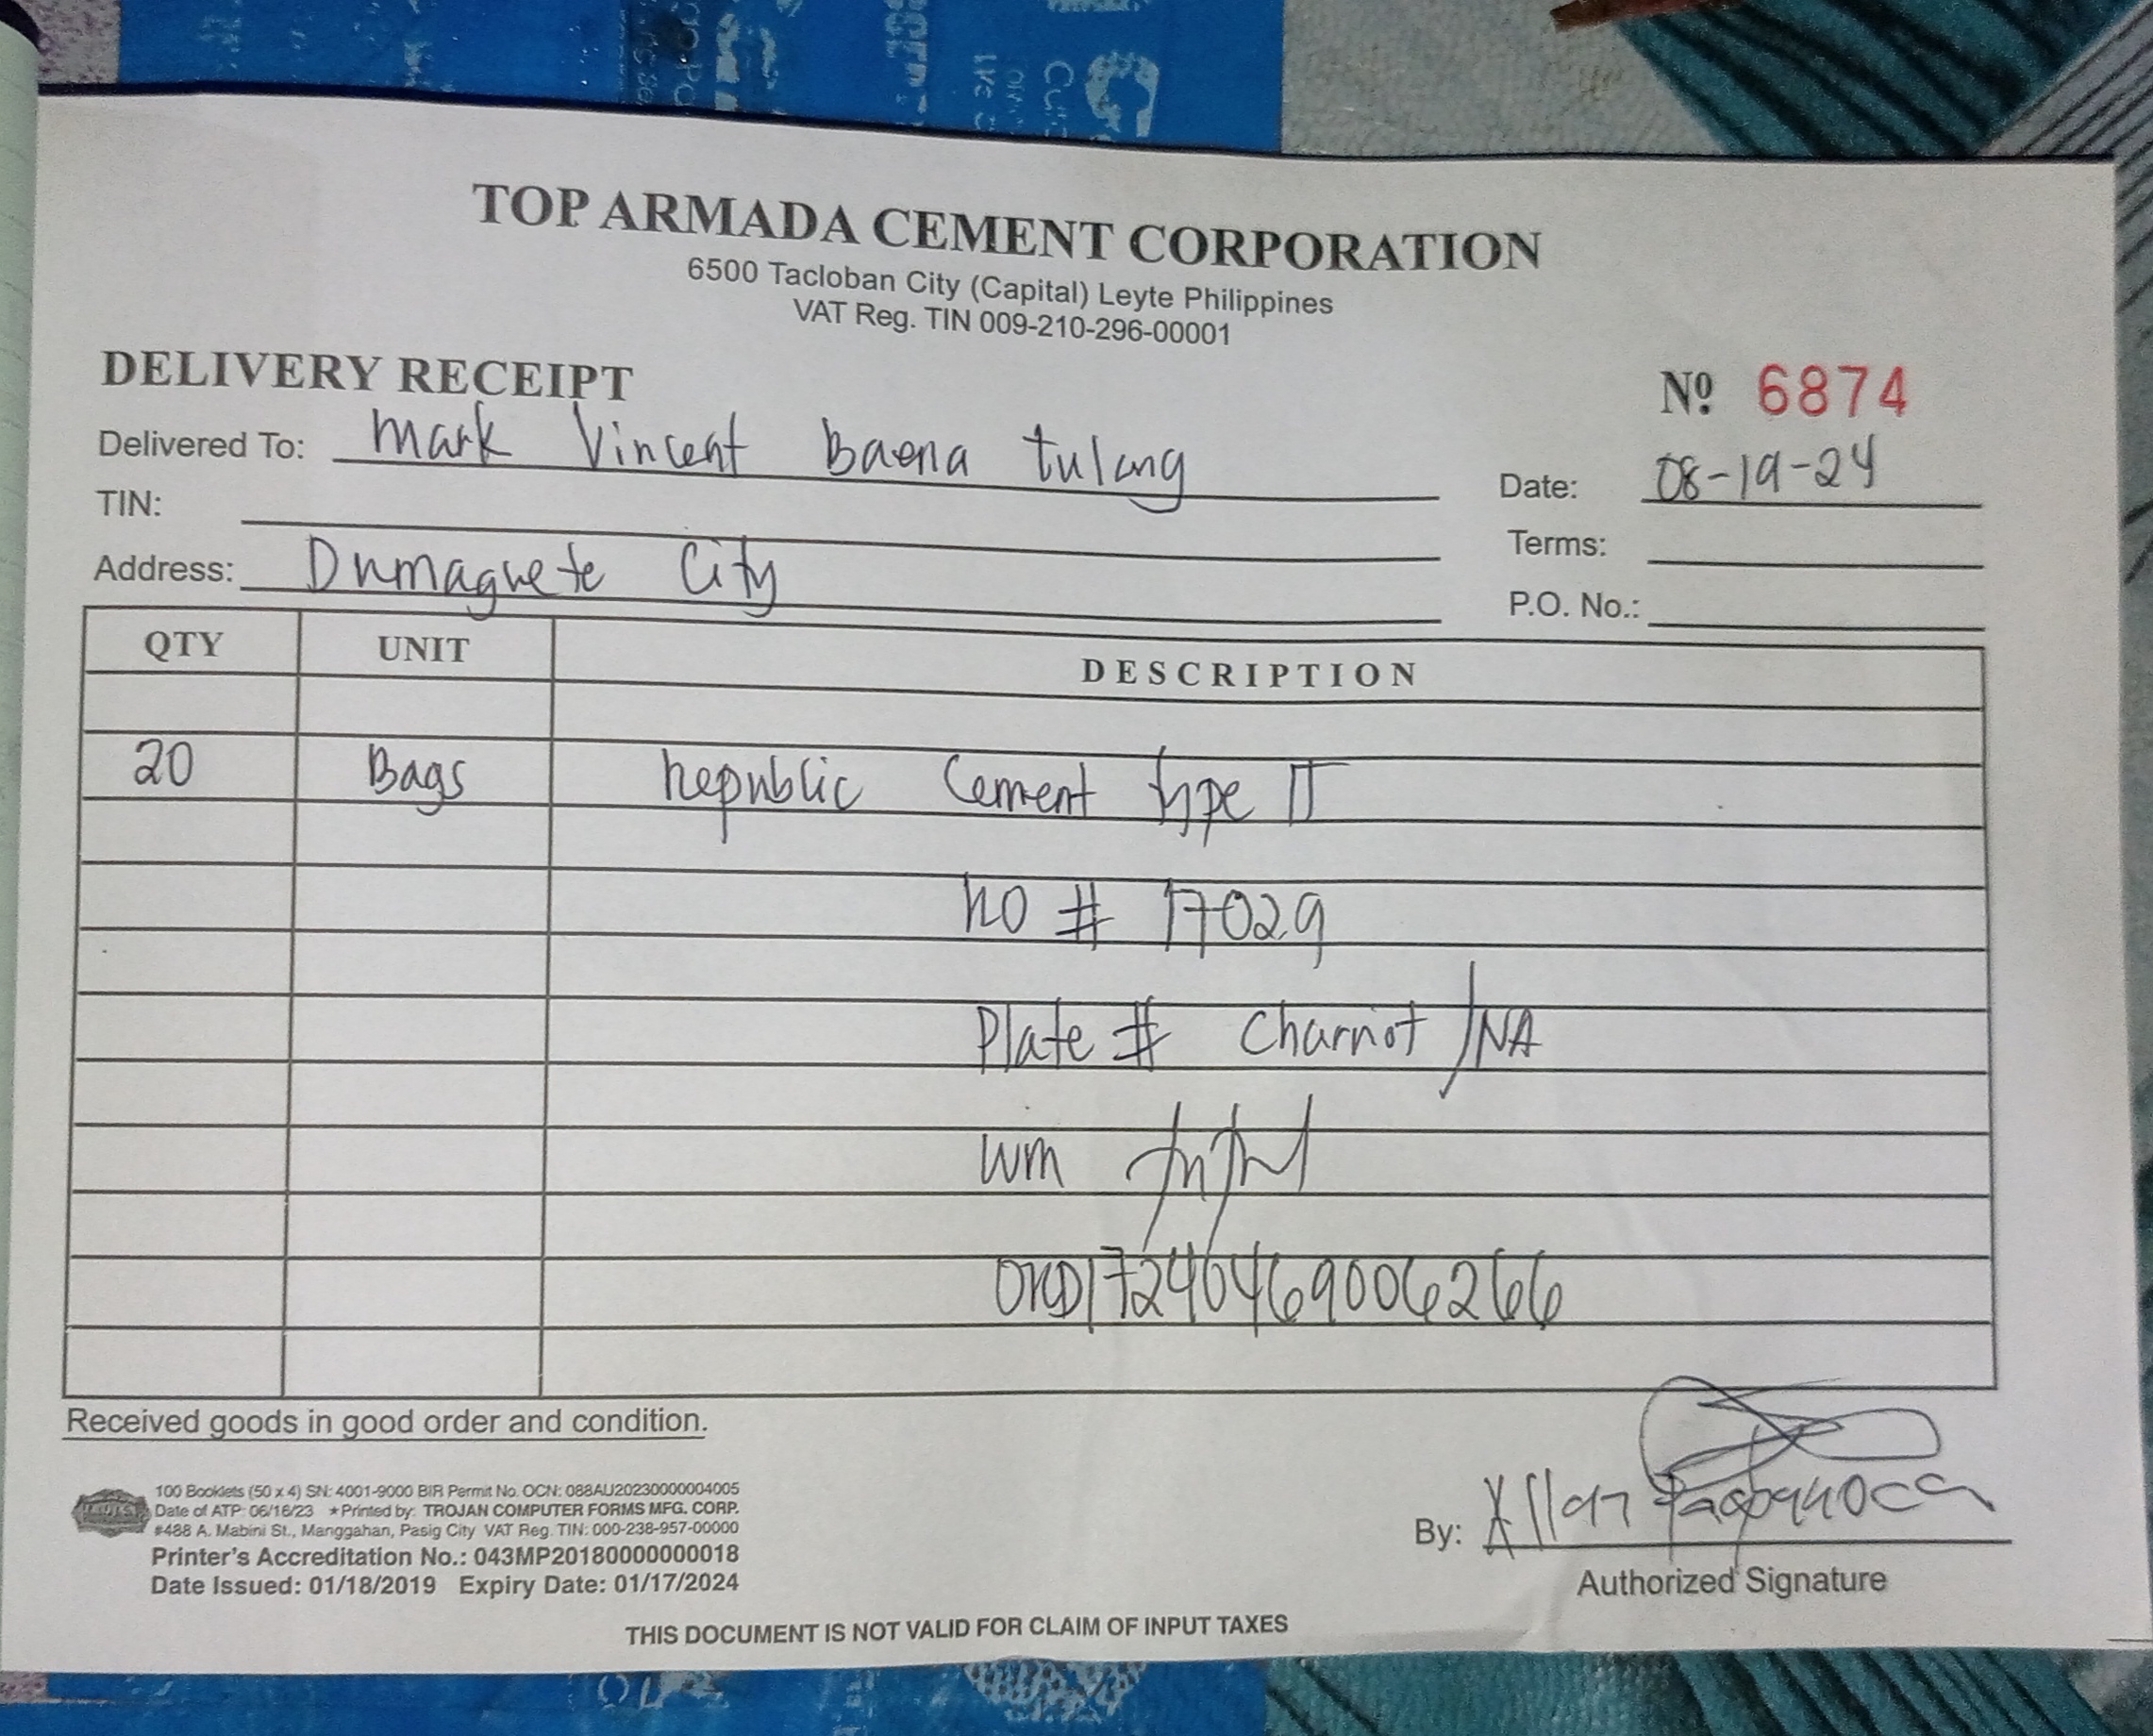 TOP ARMADA CEMENT CORPORATION
6500 Tacloban City (Capital) Leyte Philippines
VAT Reg. TIN 009-210-296-00001
DELIVERY RECEIPT
Nº 6874
Delivered To: Mark Vincent Baena Tulang
Date: 08-19-24
TIN:
Terms:
Address: Dumaguete City
P.O. No.:
QTY UNIT DESCRIPTION
20 Bags Republic Cement type II
RO # 17029
Plate # Charriot / NA
WM
ORD1724046900626 6
Received goods in good order and condition.
100 Booklets (50 x 4) SN: 4001-9000 BIR Permit No. OCN: 088AU20230000004005
Date of ATP: 06/16/23 ★Printed by: TROJAN COMPUTER FORMS MFG. CORP.
#488 A. Mabini St., Manggahan, Pasig City VAT Reg. TIN: 000-238-957-00000
Printer's Accreditation No.: 043MP20180000000018
Date Issued: 01/18/2019 Expiry Date: 01/17/2024
By: Allan
Authorized Signature
THIS DOCUMENT IS NOT VALID FOR CLAIM OF INPUT TAXES